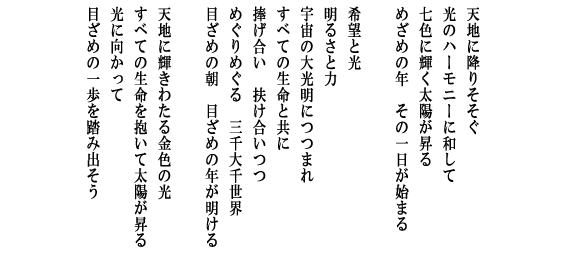 天地に降りそそぐ
光のハーモニーに和して
七色に輝く太陽が昇る
めざめの年　その一日が始まる
希望と光
明るさと力
宇宙の大光明につつまれ
すべての生命と共に
捧げ合い　扶け合いつつ
めぐりめぐる　三千大千世界
目ざめの朝　目ざめの年が明ける
天地に輝きわたる金色の光
すべての生命を抱いて太陽が昇る
光に向かって
目ざめの一歩を踏み出そう